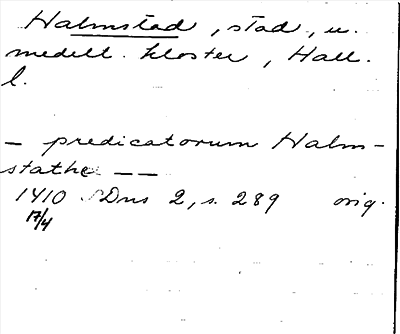 Halmstad, stad, u.
medelt. kloster, Hall.
l.
— predicatorum Halm-
stathe — —
1410 SDns 2, s. 289 orig.
17/4